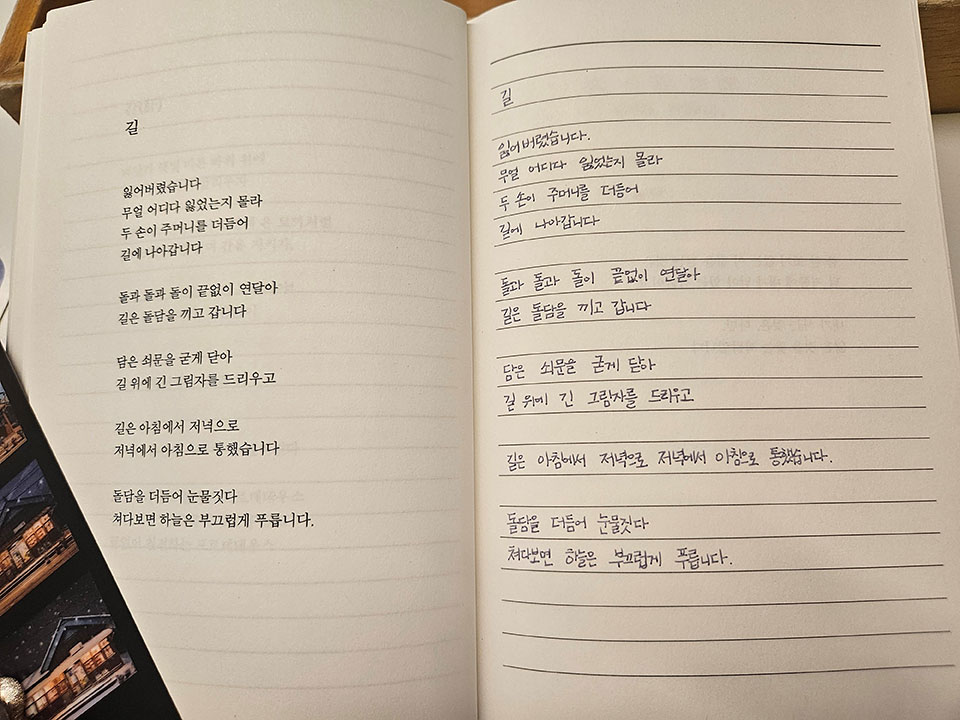 길
잃어버렸습니다
무얼 어디다 잃었는지 몰라
두 손이 주머니를 더듬어
길에 나아갑니다
돌과 돌과 돌이 끝없이 연달아
길은 돌담을 끼고 갑니다
담은 쇠문을 굳게 닫아
길 위에 긴 그림자를 드리우고
길은 아침에서 저녁으로
저녁에서 아침으로 통했습니다
돌담을 더듬어 눈물짓다
쳐다보면 하늘은 부끄럽게 푸릅니다.
길
잃어버렸습니다.
무얼 어디다 잃었는지 몰라
두 손이 주머니를 더듬어
길에 나아갑니다
돌과 돌과 돌이 끝없이 연달아
길은 돌담을 끼고 갑니다
담은 쇠문을 굳게 닫아
길 위에 긴 그림자를 드리우고
길은 아침에서 저녁으로 저녁에서 아침으로 통했습니다.
돌담을 더듬어 눈물짓다
쳐다보면 하늘은 부끄럽게 푸릅니다.